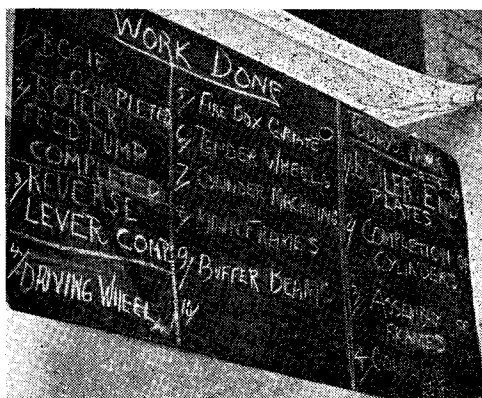 WORK DONE
1/ BOGIE
COMPLETED
2/ BOILER
FEED PUMP
COMPLETED
3/ REVERSE
LEVER COMP.
4/ DRIVING WHEEL
5/ FIRE BOX
6/ TENDER WHEELS
7/ CYLINDER MACHINING
FRAMES
9/ BUFFER BEAMS
10/
TODAYS
BOILER END
PLATES
2/ COMPLETION OF
CYLINDERS
3/ ASSEMBLY OF
FRAMES
4/